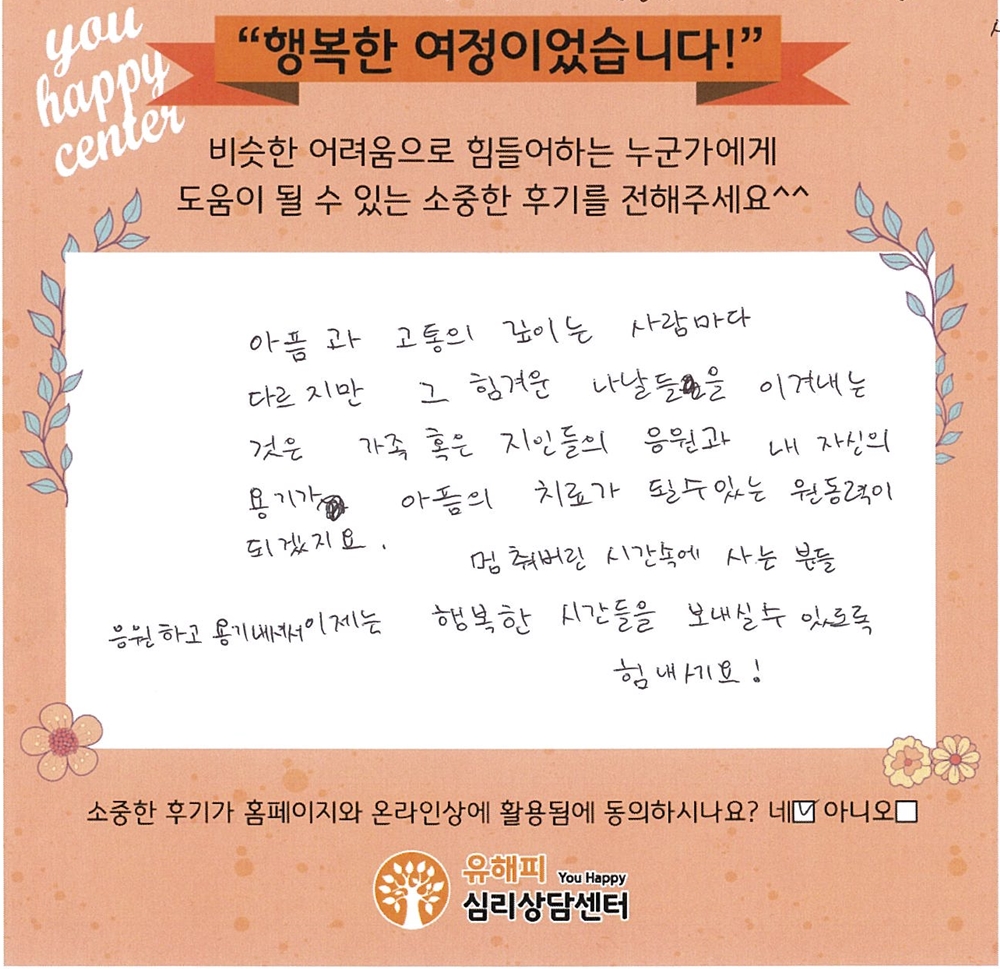 you
happy
center
“행복한 여정이었습니다!”
비슷한 어려움으로 힘들어하는 누군가에게
도움이 될 수 있는 소중한 후기를 전해주세요^^
아픔과 고통의 깊이는 사람마다
다르지만 그 힘겨운 나날들을 이겨내는
것은 가족 혹은 지인들의 응원과 내 자신의
용기가 아픔의 치료가 될수있는 원동력이
되겠지요.
멈춰버린 시간속에 사는 분들
응원하고 용기내셔서 이제는 행복한 시간들을 보내실수 있도록
힘내시기요!
소중한 후기가 홈페이지와 온라인상에 활용됨에 동의하시나요? 네☑ 아니오☐
유해피 You Happy
심리상담센터